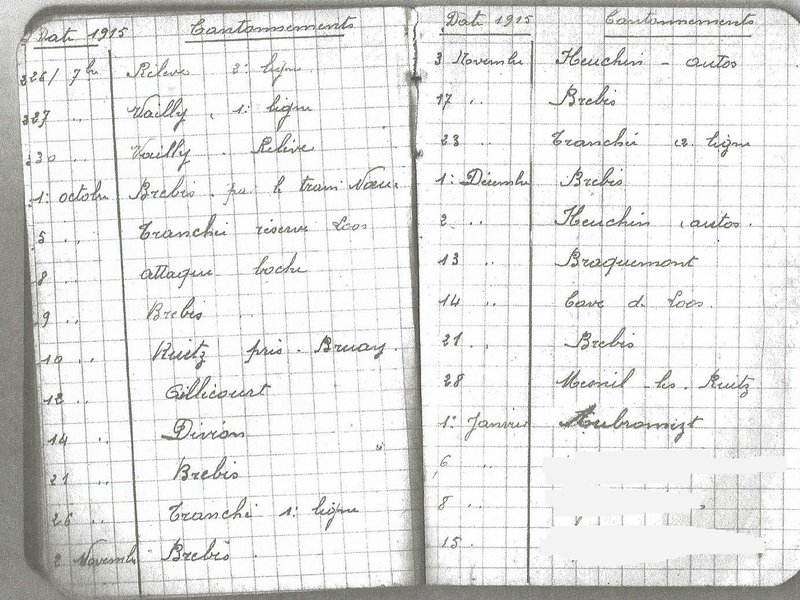 Date 1915 Cantonnements
226/ 7bre Relève 2: ligne
227 .. Vailly, 1: ligne
230 .. Vailly . Relève
1: octobre Brebis. par le train Nœu.
5 .. Tranchée réserve Loos
8 .. attaque boche
9 .. Brebis
10 .. Ruitz près. Bruay.
12 .. Gillicourt
14 .. Divion
21 .. Brebis
26 .. Tranché 1: ligne
2 Novembre Brebis
Date 1915 Cantonnements
3 Novembre Heuchin - autos
17 .. Brebis
23 .. Tranchée 2. ligne
1: Décembre Brebis
2 .. Heuchin , autos.
13 .. Braquemont
14 .. Cave de Loos.
21 . Brebis
28 Mesnil-les-Ruitz
1: Janvier
6 ..
8 ..
15 .